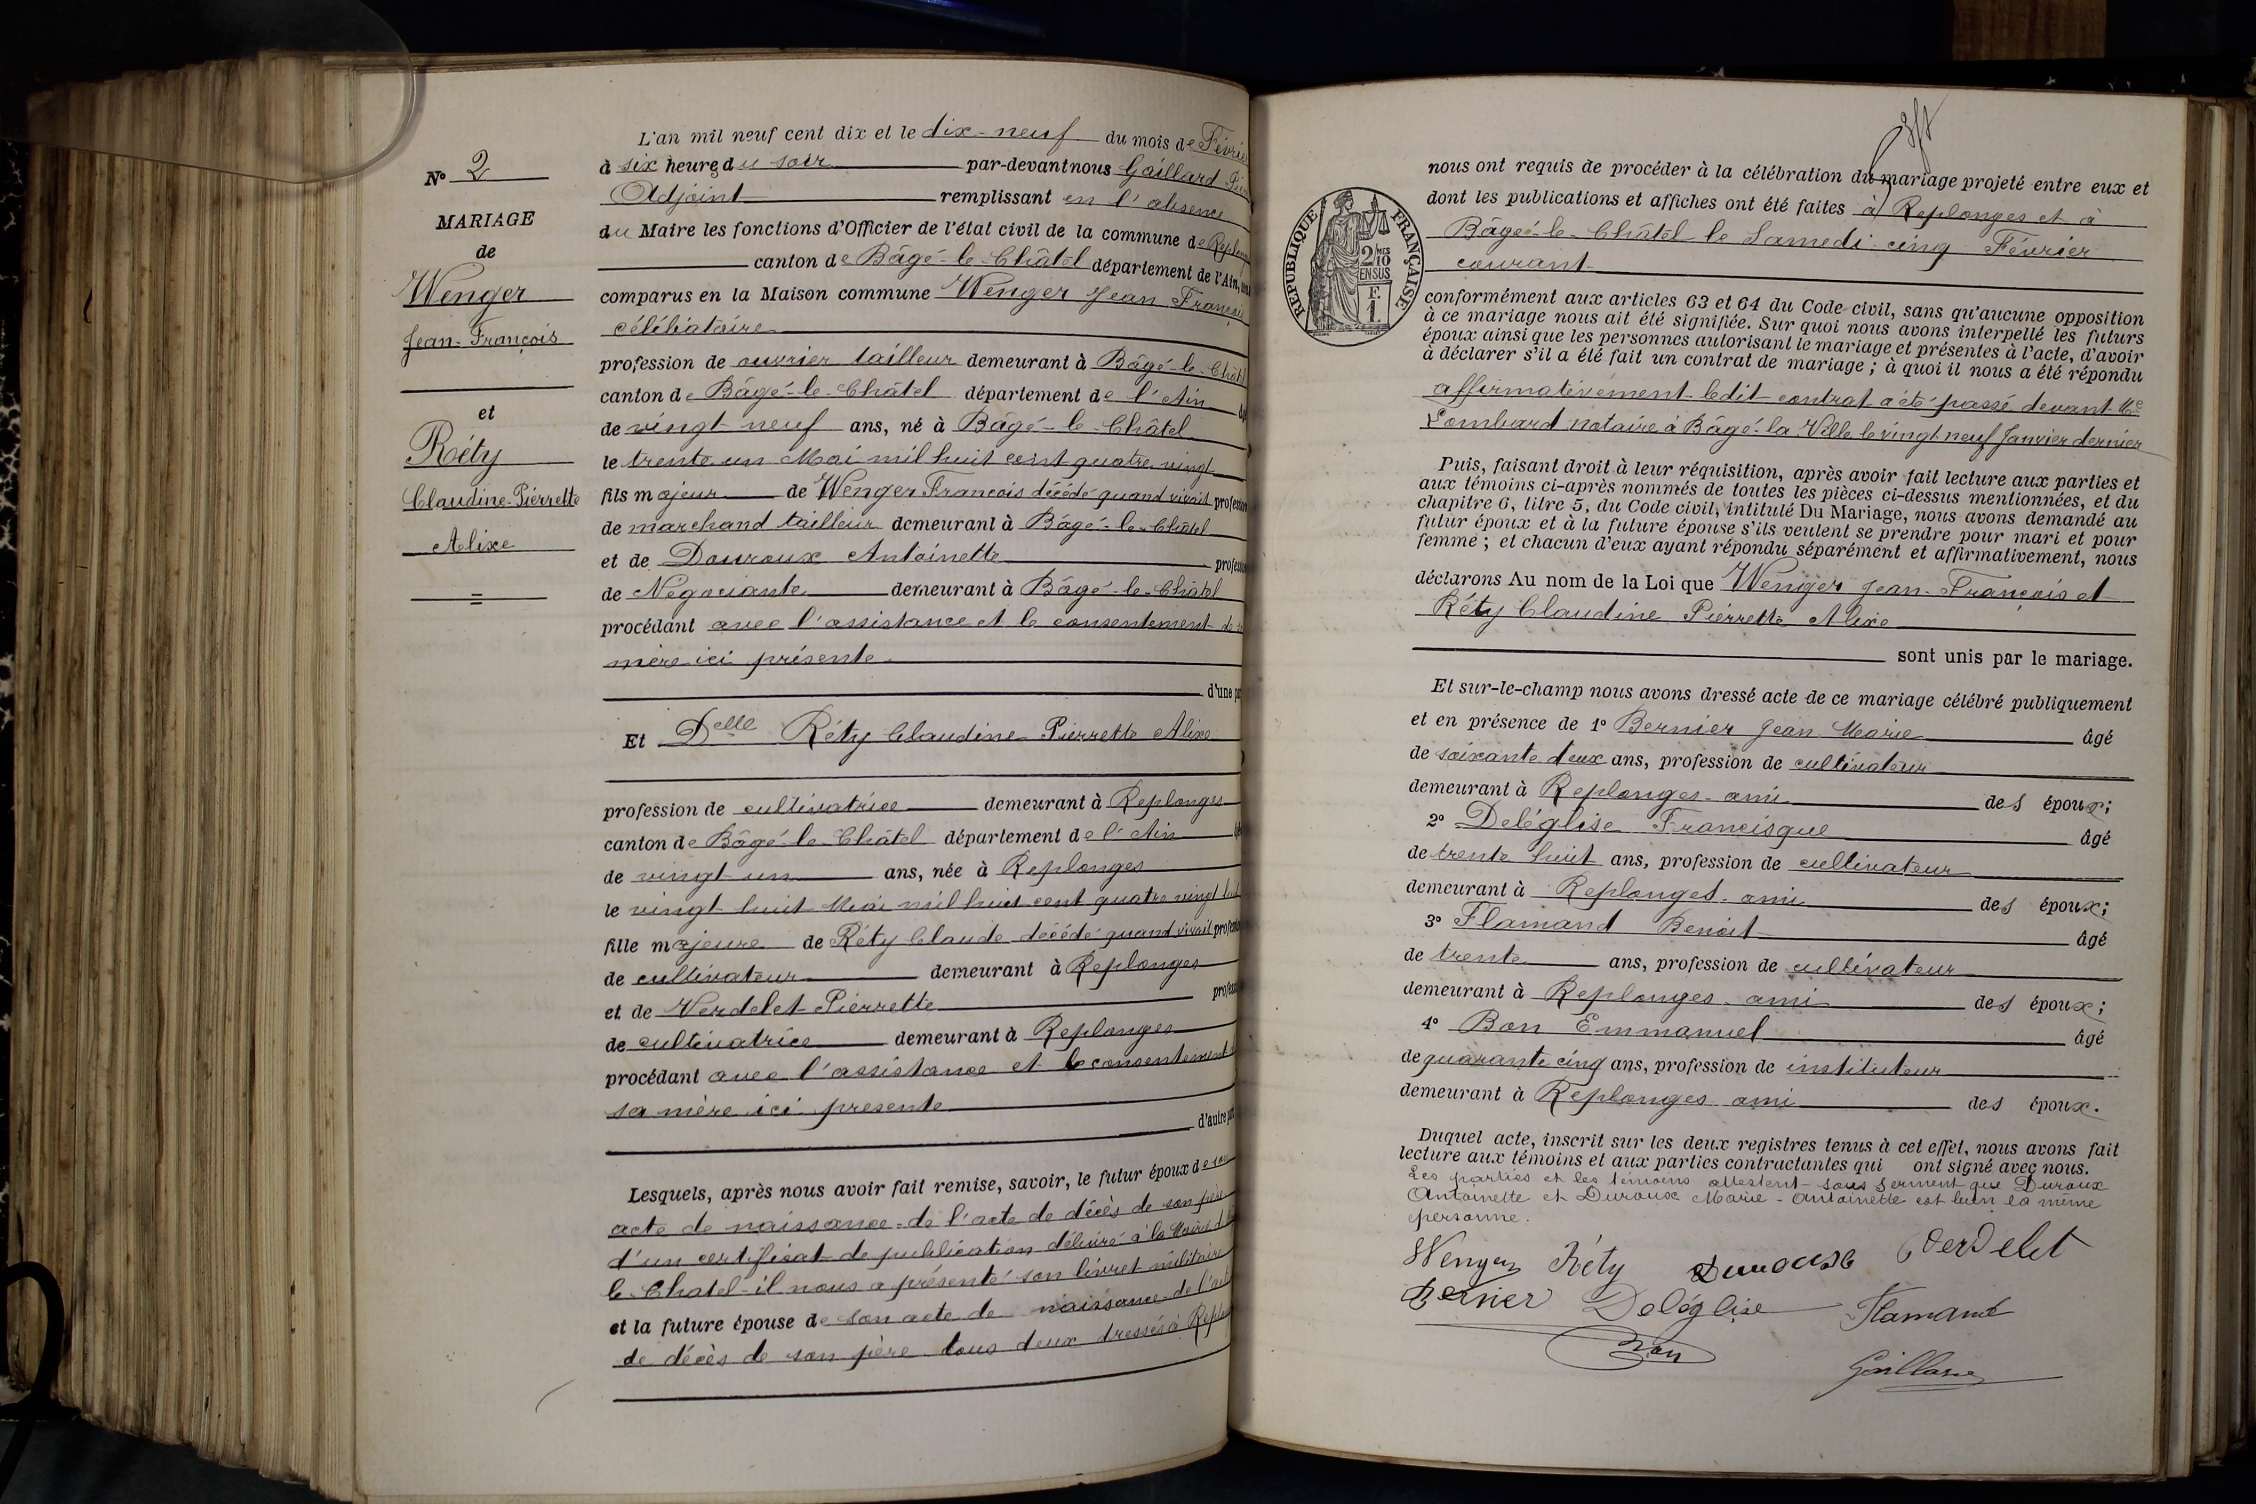 N° 2
MARIAGE
de
Wenger
Jean-François
et
Réty
Claudine-Pierrette
Alixe
L'an mil neuf cent dix et le dix-neuf du mois de Février
à six heures du soir par-devant nous Gaillard
Adjoint remplissant en l'absence
du Maire les fonctions d'Officier de l'état civil de la commune de
canton de Bâgé-le-Châtel département de l'Ain,
comparus en la Maison commune Wenger Jean François
célibataire
profession de ouvrier tailleur demeurant à Bâgé-le-Châtel
canton de Bâgé-le-Châtel département de l'Ain
de vingt neuf ans, né à Bâgé-le-Châtel
le trente un Mai mil huit cent quatre vingt
fils majeur de Wenger François décédé quand vivait profession
de marchand tailleur demeurant à Bâgé-le-Châtel
et de Douroux Antoinette profession
de Négociante demeurant à Bâgé-le-Châtel
procédant avec l'assistance et le consentement de
mère ici présente
d'une part
Et Delle Réty Claudine Pierrette Alixe
profession de cultivatrice demeurant à Replonges
canton de Bâgé-le-Châtel département de l'Ain
de vingt un ans, née à Replonges
le vingt huit Mai mil huit cent quatre vingt huit
fille majeure de Réty Claude décédé quand vivait profession
de cultivateur demeurant à Replonges
et de Verdelet Pierrette profession
de cultivatrice demeurant à Replonges
procédant avec l'assistance et le consentement
sa mère ici presente
d'autre part
Lesquels, après nous avoir fait remise, savoir, le futur époux de son
acte de naissance - de l'acte de décès de son père
d'un certificat de publication délivré à la Mairie de
le Chatel - il nous a présenté son livret militaire
et la future épouse de son acte de naissance - de l'acte
de décès de son père tous deux dressés à
nous ont requis de procéder à la célébration du mariage projeté entre eux et
dont les publications et affiches ont été faites à Replonges et à
Bâgé-le-Châtel le Samedi cinq Février
courant
REPUBLIQUE FRANÇAISE
2/10
EN SUS
F.
1.
conformément aux articles 63 et 64 du Code civil, sans qu'aucune opposition
à ce mariage nous ait été signifiée. Sur quoi nous avons interpellé les futurs
époux ainsi que les personnes autorisant le mariage et présentes à l'acte, d'avoir
à déclarer s'il a été fait un contrat de mariage ; à quoi il nous a été répondu
affirmativement ledit contrat a été passé devant Me
Lombard notaire à Bâgé-la-Ville le vingt neuf Janvier dernier
Puis, faisant droit à leur réquisition, après avoir fait lecture aux parties et
aux témoins ci-après nommés de toutes les pièces ci-dessus mentionnées, et du
chapitre 6, titre 5, du Code civil, intitulé Du Mariage, nous avons demandé au
futur époux et à la future épouse s'ils veulent se prendre pour mari et pour
femme ; et chacun d'eux ayant répondu séparément et affirmativement, nous
déclarons Au nom de la Loi que Wenger Jean-François et
Réty Claudine Pierrette Alixe
sont unis par le mariage.
Et sur-le-champ nous avons dressé acte de ce mariage célébré publiquement
et en présence de 1° Bernier Jean Marie âgé
de soixante deux ans, profession de cultivateur
demeurant à Replonges - ami des époux ;
2° Deléglise Francisque âgé
de trente huit ans, profession de cultivateur
demeurant à Replonges - ami des époux ;
3° Flamand Benoit âgé
de trente ans, profession de cultivateur
demeurant à Replonges - ami des époux ;
4° Bon Emmanuel âgé
de quarante cinq ans, profession de instituteur
demeurant à Replonges ami des époux.
Duquel acte, inscrit sur les deux registres tenus à cet effet, nous avons fait
lecture aux témoins et aux parties contractantes qui ont signé avec nous.
Les parties et les témoins attestent sous serment que Duroux
Antoinette et Duroux Marie-Antoinette est bien la même
personne.
Wenger Réty Duroux Verdelet
Bernier Deléglise Flamand
Bon
Gaillard